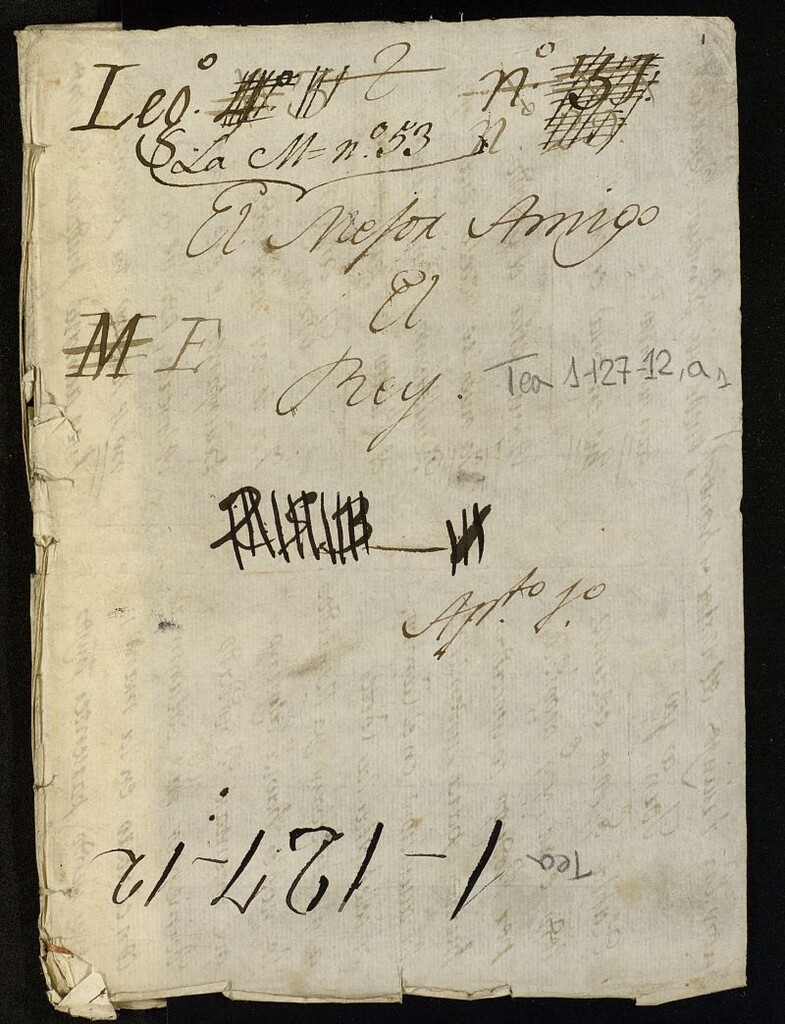 1
Leg.º 2 n.º 51.
La M= n.º 53 n.º
El Mejor Amigo
El
M E
Rey. Tea 1-127-12, a1
Ap.to 1.º
Tea 1-127-12